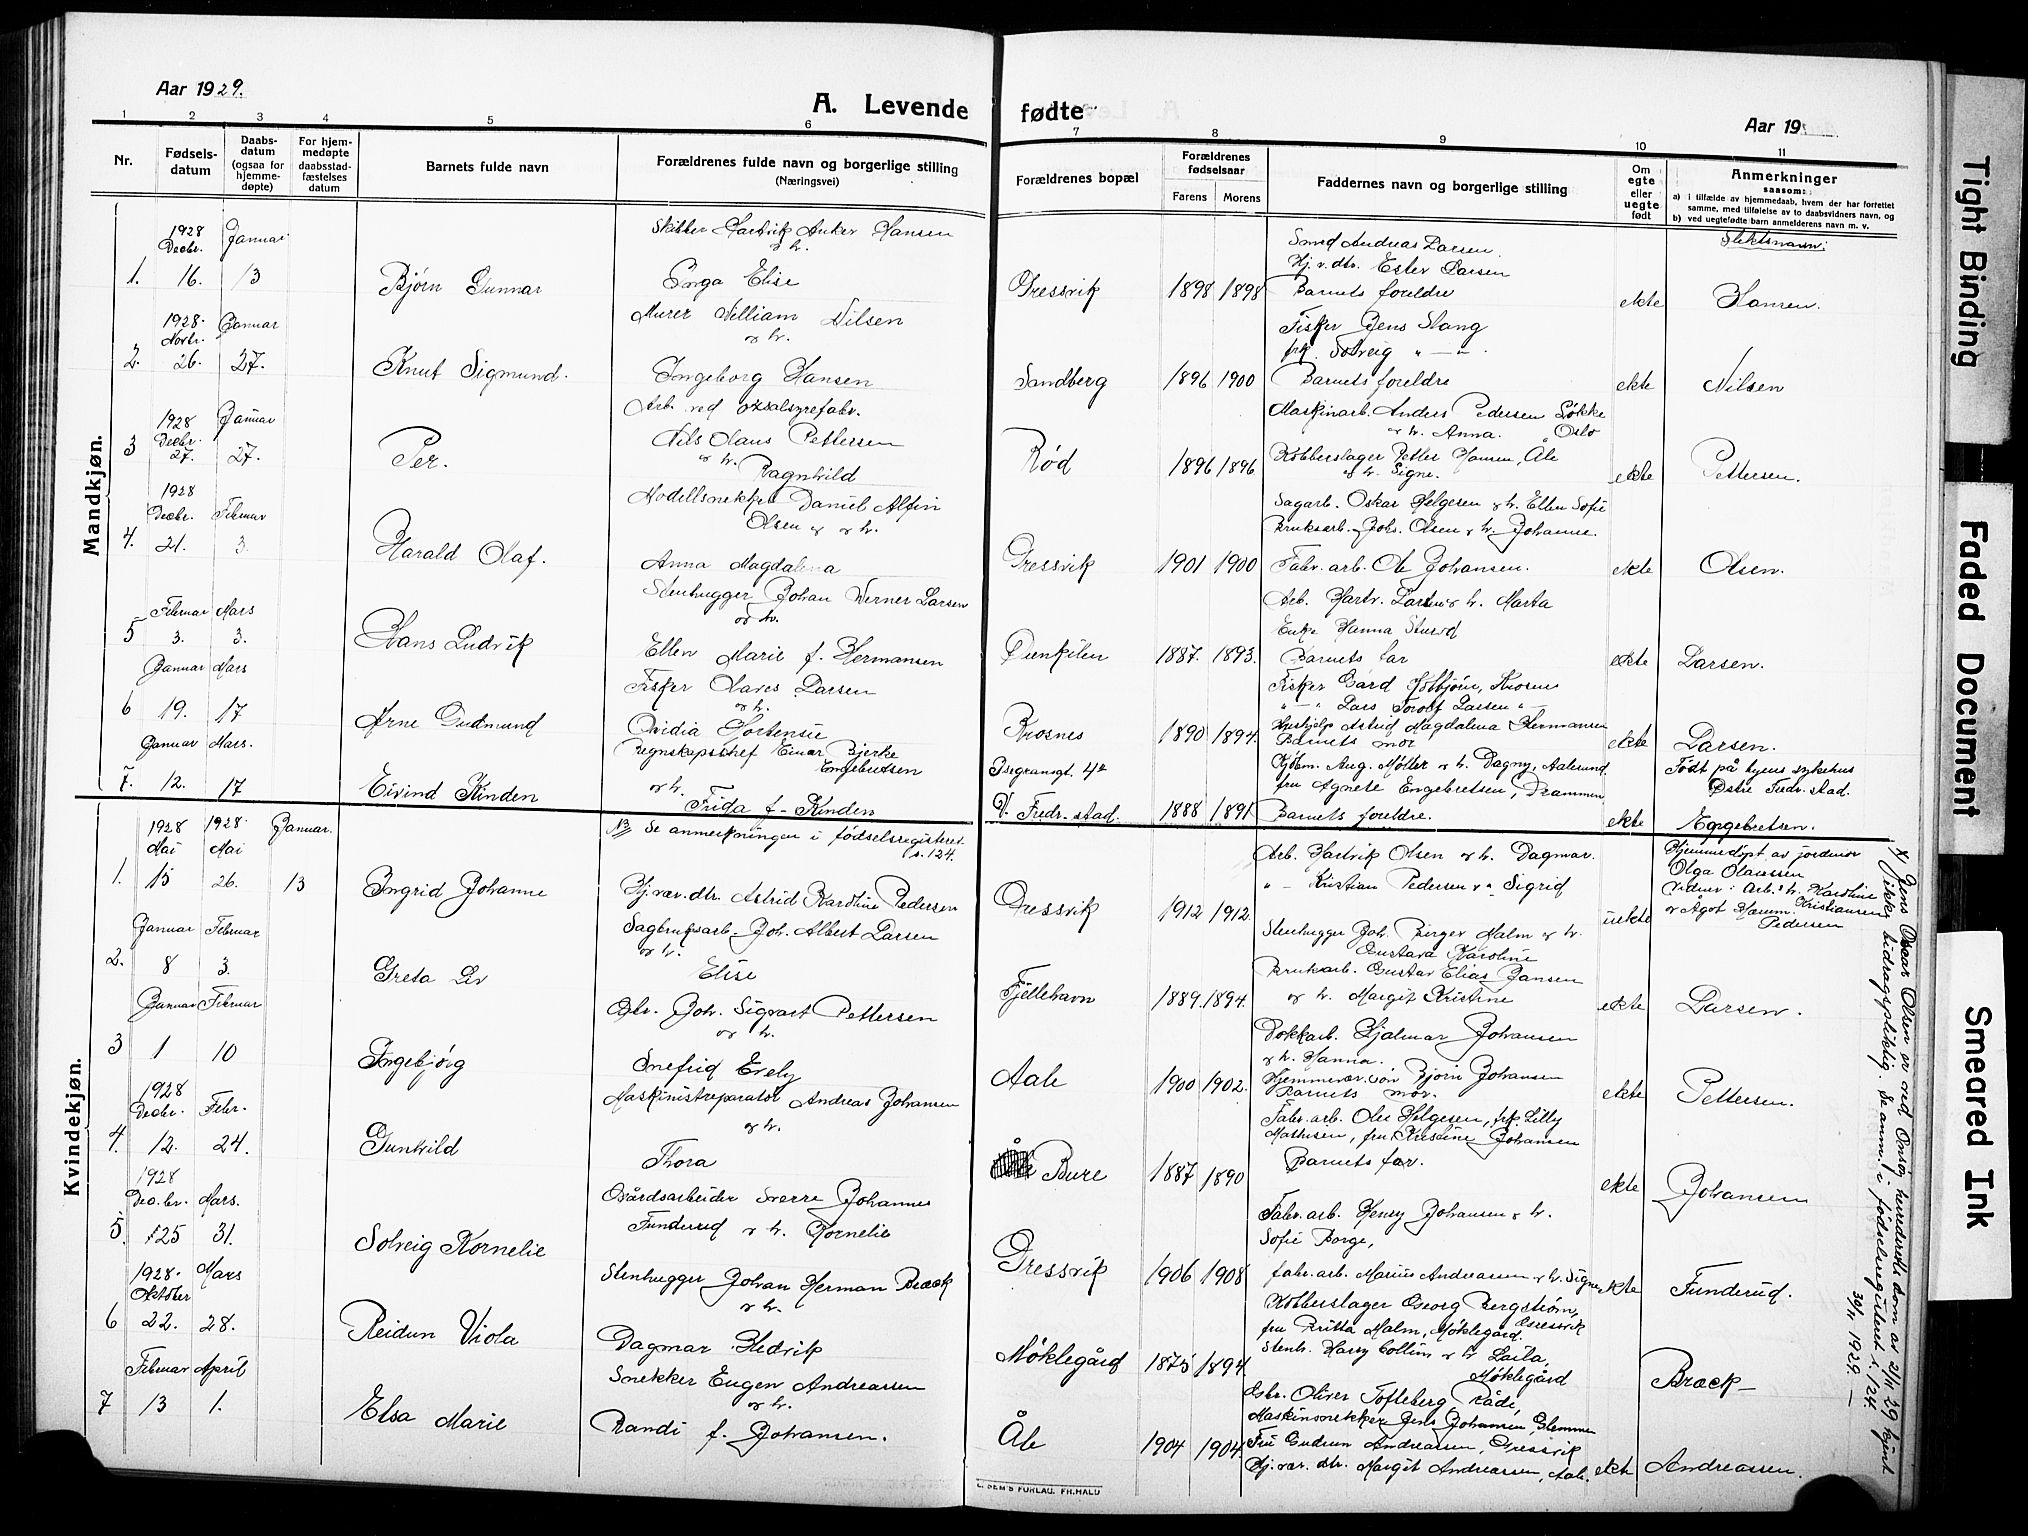 Aar 1929.
A. Levende
1 2 3 4 5 6
Nr.
Fødsels-
datum
Daabs-
datum
(ogsaa for
hjemme-
døpte)
For hjem-
medøpte
daabsstad-
fæstelses
datum
Barnets fulde navn
Forældrenes fulde navn og borgerlige stilling
(Næringsvei)
Mandkjøn.
1928 Januar
Decbr.
1. 16. 13
Bjørn Gunnar
Skibber Hartvik Anker Hansen
og h.
Inga Elise
1928. Januar
Novbr.
2. 26. 27.
Knut Sigmund.
Murer William Nilsen
og h.
Ingeborg Hansen
1928 Januar
Decbr.
3 27. 27.
Per.
Arb. ved oxsalsyrefabr.
Nils Olaus Pettersen
og h.
Ragnhild
1928
Decbr. Februar
4. 21. 3.
Harald Olaf.
Modellsnekker Daniel Alfin
Olsen og h.
Anna Magdalena
Februar Mars
5 3. 3.
Hans Ludvik
Stenhugger Johan Verner Larsen
og h.
Ellen Marie f. Hermansen
Januar Mars
6 19. 17
Arne Gudmund
Fisker Olaves Larsen
og h.
Ovidia Hortensie
Januar Mars.
7. 12. 17
Eivind Kinden
Regnskapschef Einar Bjerke
Engebretsen
og h.
Frida f. Kinden
Kvindekjøn.
NB Se anmerkningen i fødselsregisteret
s. 124.
1928 1928. Januar.
Mai Mai
1. 15 26. 13
Ingrid Johanne
Hj. vær. dtr. Astrid Karoline Pedersen
Januar Februar
2. 8 3.
Greta Liv
Sagbruksarb. Joh. Albert Larsen
og h.
Elise
Januar Februar
3 1 10
Ingebjørg
Gbr. Joh. Sigvart Pettersen
og h.
Snefrid Evely
1928
Decbr. Febr.
4. 12. 24.
Gunhild
Maskinistreparatør Andreas Johansen
og h.
Thora
1928
Decbr. Mars.
5. 25 31.
Solveig Kornelie
Gårdsarbeider Sverre Johannes
Funderud og h. Kornelie
1928. Mars
Oktober
6 22. 28.
Reidun Viola
Stenhugger Johan Herman Bræck
og h.
Dagmar Hedvik
Februar April
7 13 1.
Elsa Marie
Snekker Eugen Andreassen
og h.
Randi f. Johansen.
fødte
Aar 19
7 8 9 10 11
Forældrenes bopæl
Forældrenes
fødselsaar
Farens Morens
Faddernes navn og borgerlige stilling
Om
egte
eller
uegte
født
Anmerkninger
saasom:
a) i tilfælde av hjemmedaab, hvem der har forrettet
samme, med tilføielse av to daabsvidners navn, og
b) ved uegtefødte barn anmelderens navn m. v.
Slektsnavn:
Smed Andreas Larsen
Hj. v. dtr. Ester Larsen
Gressvik 1898 1898 Barnets foreldre ekte Hansen.
Fisker Jens Stang
frk. Solveig " — " .
Sandberg 1896 1900 Barnets foreldre ekte Nilsen
Maskinarb. Anders Pedersen Løkke
og h. Anna. Oslo
Rød 1896 1896 Kobberslager Petter Hansen, Åle
og h. Signe. ekte Pettersen.
Sagarb. Oskar Helgesen og h. Ellen Sofie
Bruksarb. Johs. Olsen og h. Johanne.
Gressvik 1901 1900 Fabr. arb. Ole Johansen. ekte Olsen.
Arb. Hartv. Larsen og h. Marta
Enke Hanna
1887. 1893. Barnets far ekte Larsen.
Fisker Gard Kolbjørn, Krosnes
" — " Lars Torolf Larsen " —
Krosnes 1890 1894. Hushjelp Astrid Magdalena Hermansen
Barnets mor ekte Larsen.
Kjøbm. Aug. Møller og h. Dagny, Aalesund. Født på byens sykehus
fru Agnete Engebretsen, Drammen Østre Fredr. stad.
V. Fredr. stad. 1888 1891 Barnets foreldre. ekte Engebretsen.
Arb. Hartvik Olsen og h. Dagmar.
" — Kristian Pedersen og " Sigrid
Gressvik 1912 1912. uekte
Hjemmedøpt av jordmor
Olga Olavessen
Vidner: Arb. h. Karoline
Kristiansen
og Ågot Hærum.
Pedersen
Stenhugger Joh. Birger Malm og h.
Gustava Karoline
Brukarb. Gustav Elias Jansen
Fjellehavn 1889. 1894. og h. Margit Kristine ekte Larsen.
Dokkarb. Hjalmar Johansen
og h. Hanna.
Aale 1900 1902. Hjemmevær. søn Bjørn Johansen
Barnets mor. ekte Pettersen.
Fabr. arb. Ole Helgesen, frk. Lilly
Mathisen, fru Kristine Johansen
Bure 1887 1890 Barnets far. ekte Johansen
Fabr. arb. Henry Johansen og h.
Sofie Borge,
Gressvik 1906 1908 fabr. arb. Marius Andreassen og h. Signe ekte Funderud.
Kobberslager Georg Bergstrøm,
Gressvik
fru Britta Malm, Møklegård.
Møklegård 1875 1894 Stenh. Harry Collin og h. Laila,
Møklegård Bræck —
Gbr. Oliver Tofteberg Råde,
Maskinsnekker Jens Johansen, Glemmen
Åle 1904 1904. Fru Gudrun Andreassen, Gressvik
Hj. vær. dtr. Margit Andreassen, Aale. ekte Andreassen.
x Jens Oscar Olsen er ved Onsøy herredsretts dom av 21/11 29 kjent
ikke bidragspliktig. Se anm. i fødselsregisteret s. 124.
30/11 1929. —
FORLAG. FR.HALD
Tight Binding
Faded Document
Smeared Ink